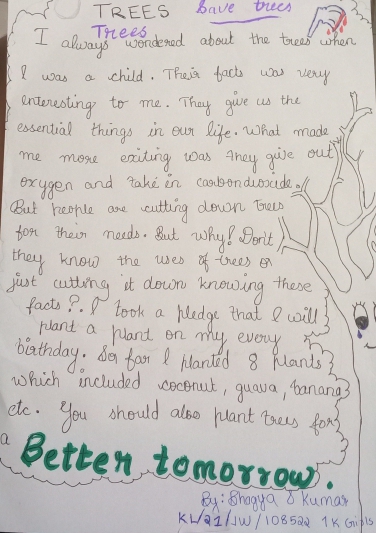 TREES Save trees
Trees
I always wondered about the trees when
I was a child. Their facts was very
interesting to me. They give us the
essential things in our life. What made
me more exiting was they give out
oxygen and take in carbondioxide.
But people are cutting down trees
for their needs. But why? Don't
they know the uses of trees or
just cutting it down knowing these
facts?. I took a pledge that I will
plant a plant on my every
birthday. So far I planted 8 plants
which included coconut, guava, banana
etc. You should also plant trees for
a Better tomorrow.
By: Bhagya S Kumar
KL/21/JW/108522 1 K Girls